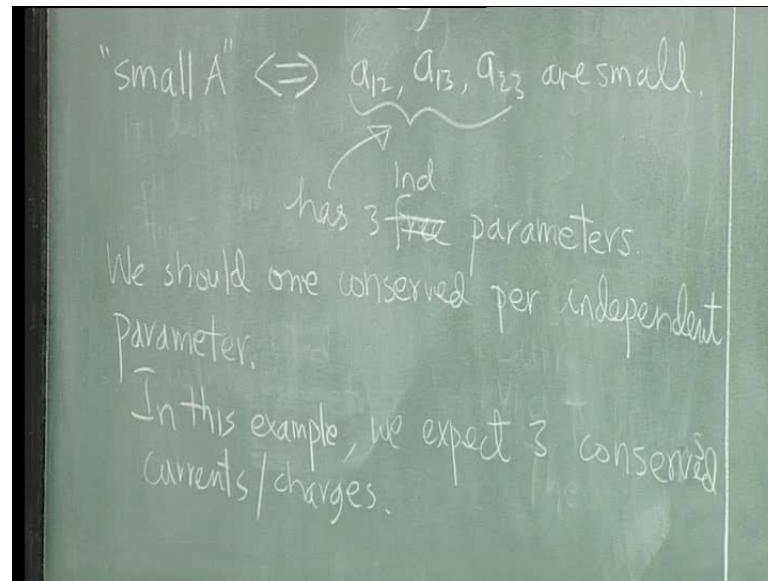 "small A" ⇔ a₁₂, a₁₃, a₂₃ are small.
Ind
has 3 free parameters.
We should one conserved per independent
parameter.
In this example, we expect 3 conserved
currents/charges.